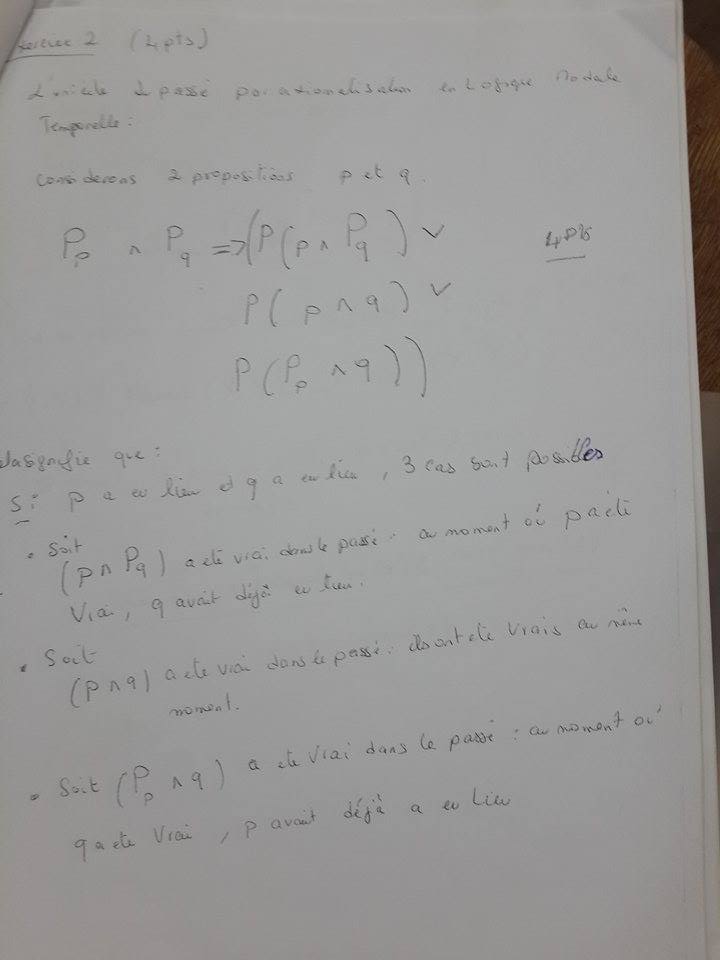 Exercice 2 (4 pts)
L'unicité du passé par axiomatisation en Logique Modale
Temporelle :
Considerons 2 propositions p et q.
Pp ∧ Pq => (P(p ∧ Pq) ∨
4 pts
P( p ∧ q) ∨
P(Pp ∧ q))
que :
Si p a eu lieu et q a eu lieu, 3 cas sont possibles
• Soit
(p ∧ Pq) a eté vrai dans le passé : au moment où p a été
Vrai, q avait déjà eu lieu.
• Soit
(p ∧ q) a ete vrai dans le passé : ils ont ete vrais au même
moment.
• Soit (Pp ∧ q) a ete vrai dans le passé : au moment où
q a ete Vrai, p avait déjà a eu Lieu